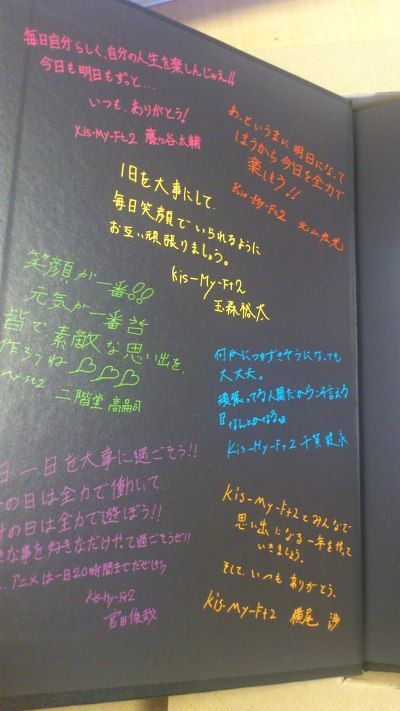 毎日自分らしく、自分の人生を楽しんじゃえ!!
今日も明日もずっと…
いつも、ありがとう!
Kis-My-Ft2 藤ヶ谷太輔
あっというまに明日になって
しまうから今日を全力で
楽しもう!!
Kis-My-Ft2 北山宏光
1日を大事にして、
毎日笑顔でいられるように
お互い頑張りましょう。
Kis-My-Ft2
玉森裕太
笑顔が一番!!
元気が一番
皆で素敵な思い出を
作ろうね♡♡♡
My-Ft2 二階堂 高嗣
何かにつまずきそうになっても
大丈夫。
頑張ってる人間だからこそ言える
『なんとかなる』
Kis-My-Ft2 千賀健永
日一日を大事に過ごそう!!
の日は全力で働いて
の日は全力で遊ぼう!!
きな事を好きなだけやって過ごそうぜ!!
…アニメは一日20時間まで
Kis-My-Ft2
宮田俊哉
Kis-My-Ft2とみんなで
思い出になる一年を作って
いきましょう。
そして、いつもありがとう。
Kis-My-Ft2 横尾 渉